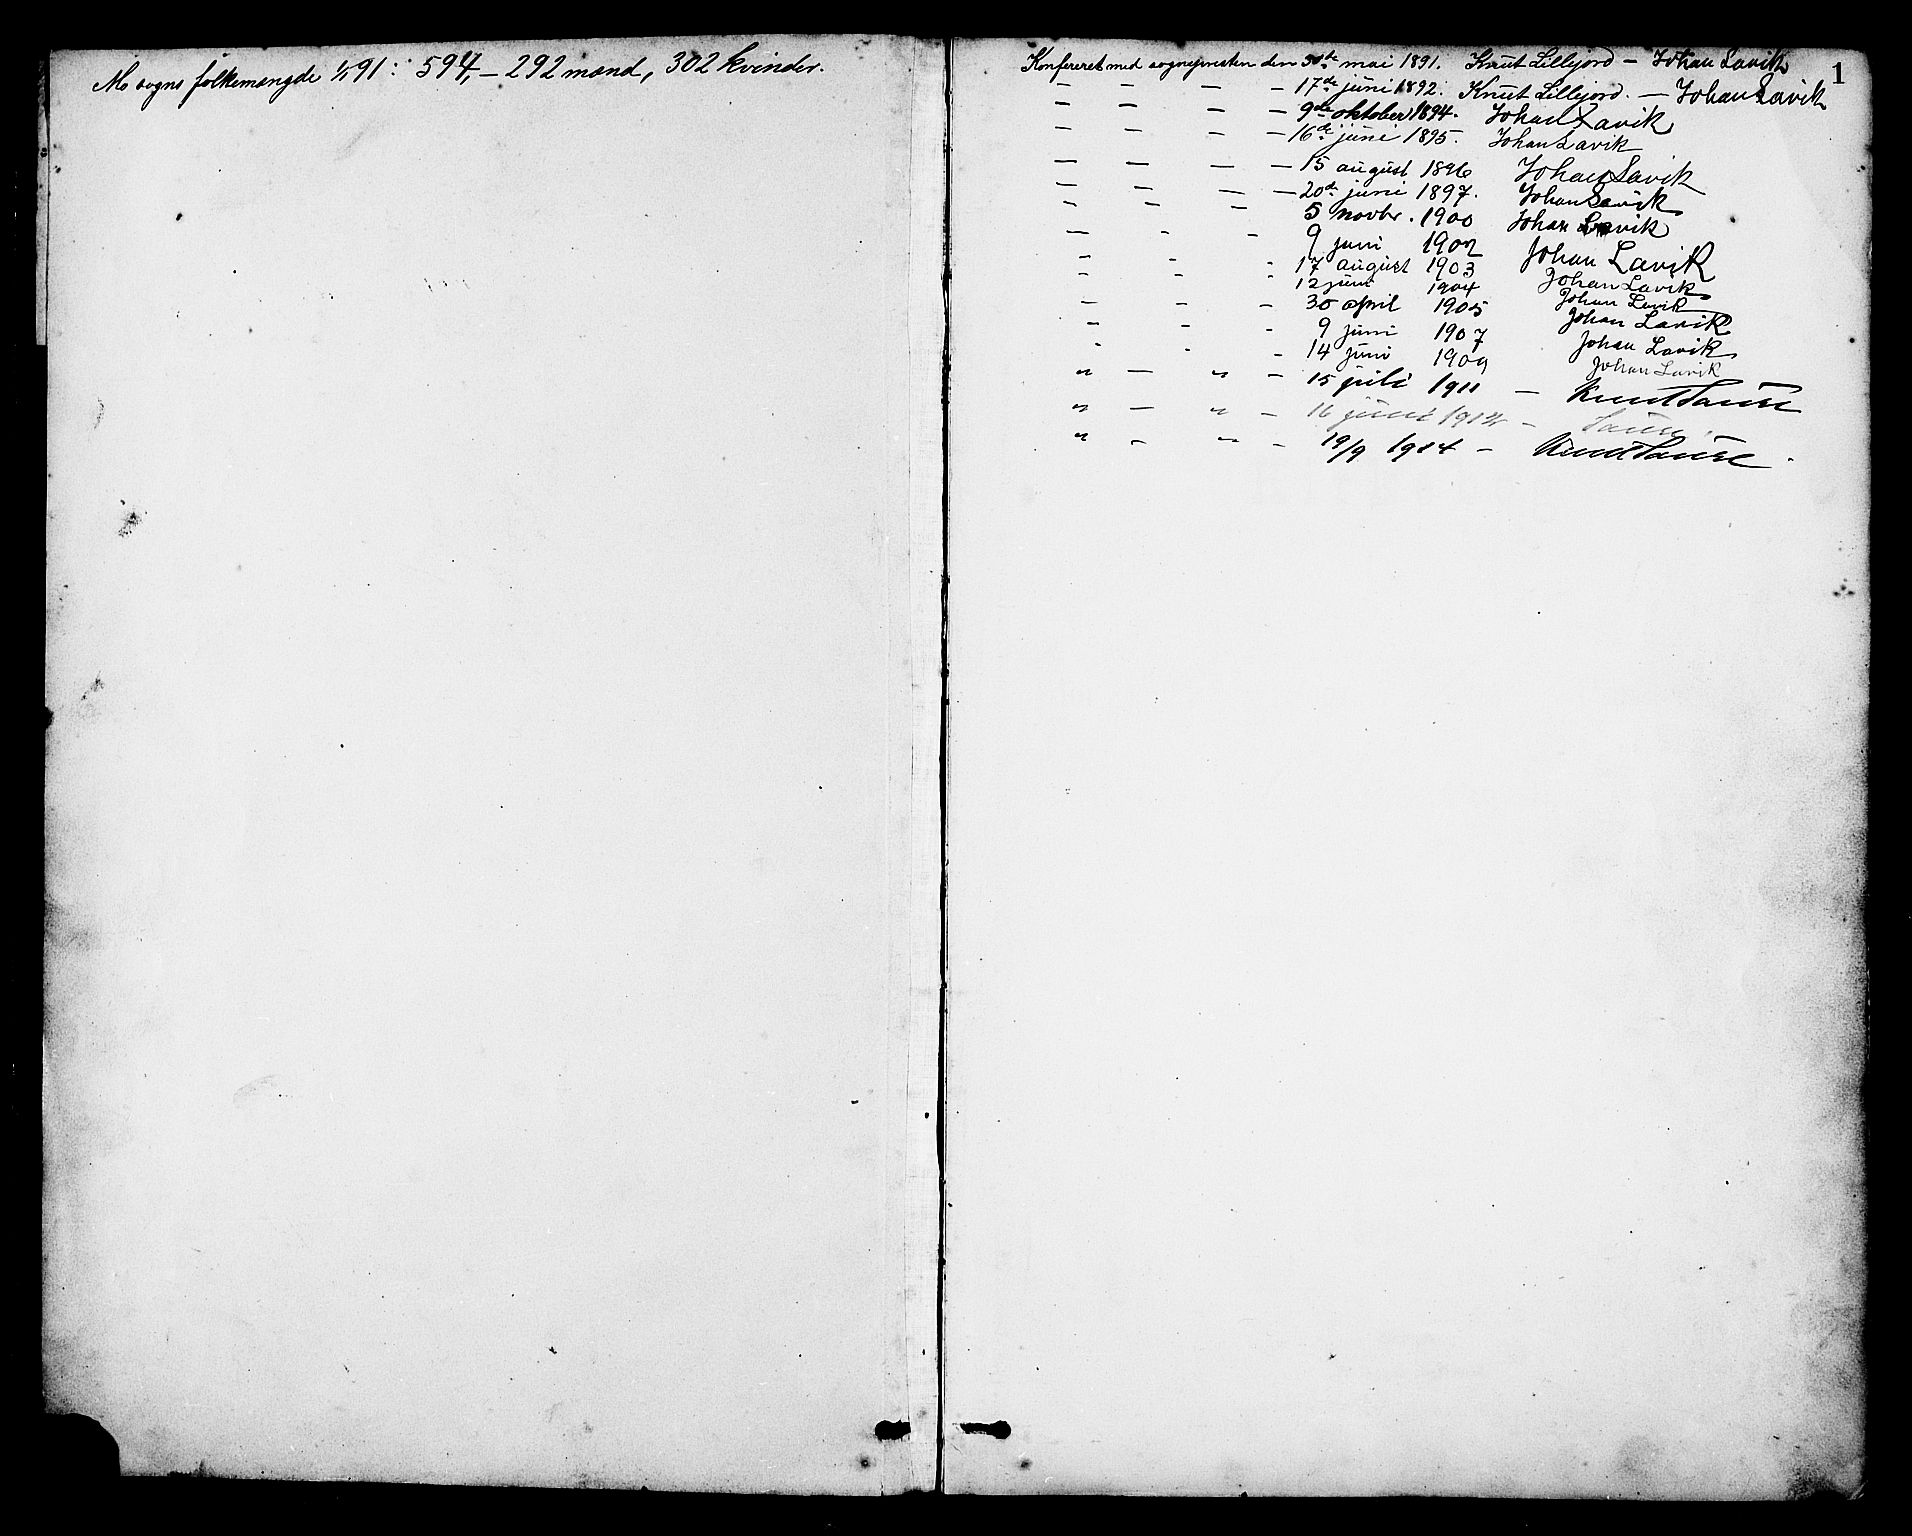 Mo sogns folkemængde 1/1 91: 594,- 292 mænd, 302 kvinder.
1
Konfereret med sognepresten den de mai 1891. Knut Lillejord – Johan Lavik
– – – – 17de juni 1892. Knut Lillejord. – Johan Lavik
– – – – 9de oktober 1894. Johan Lavik
– – – – 16de juni 1895. Johan Lavik
– – – – 15 august 1896 Johan Lavik
– – – – 20de juni 1897. Johan Lavik
– – – 5 novbr. 1900 Johan Lavik
– - - 9 juni 1902 Johan Lavik
- - - 17 august 1903 Johan Lavik
- - - 12 juni 1904 Johan Lavik
- - - 30 april 1905 Johan Lavik
- - - 9 juni 1907 Johan Lavik
- - - 14 juni 1909 Johan Lavik
" – " – 15 juli 1911 – Knut Saure
" – " – 16 juni – Saure
" – " – 19/9 1914 – Knut Saure